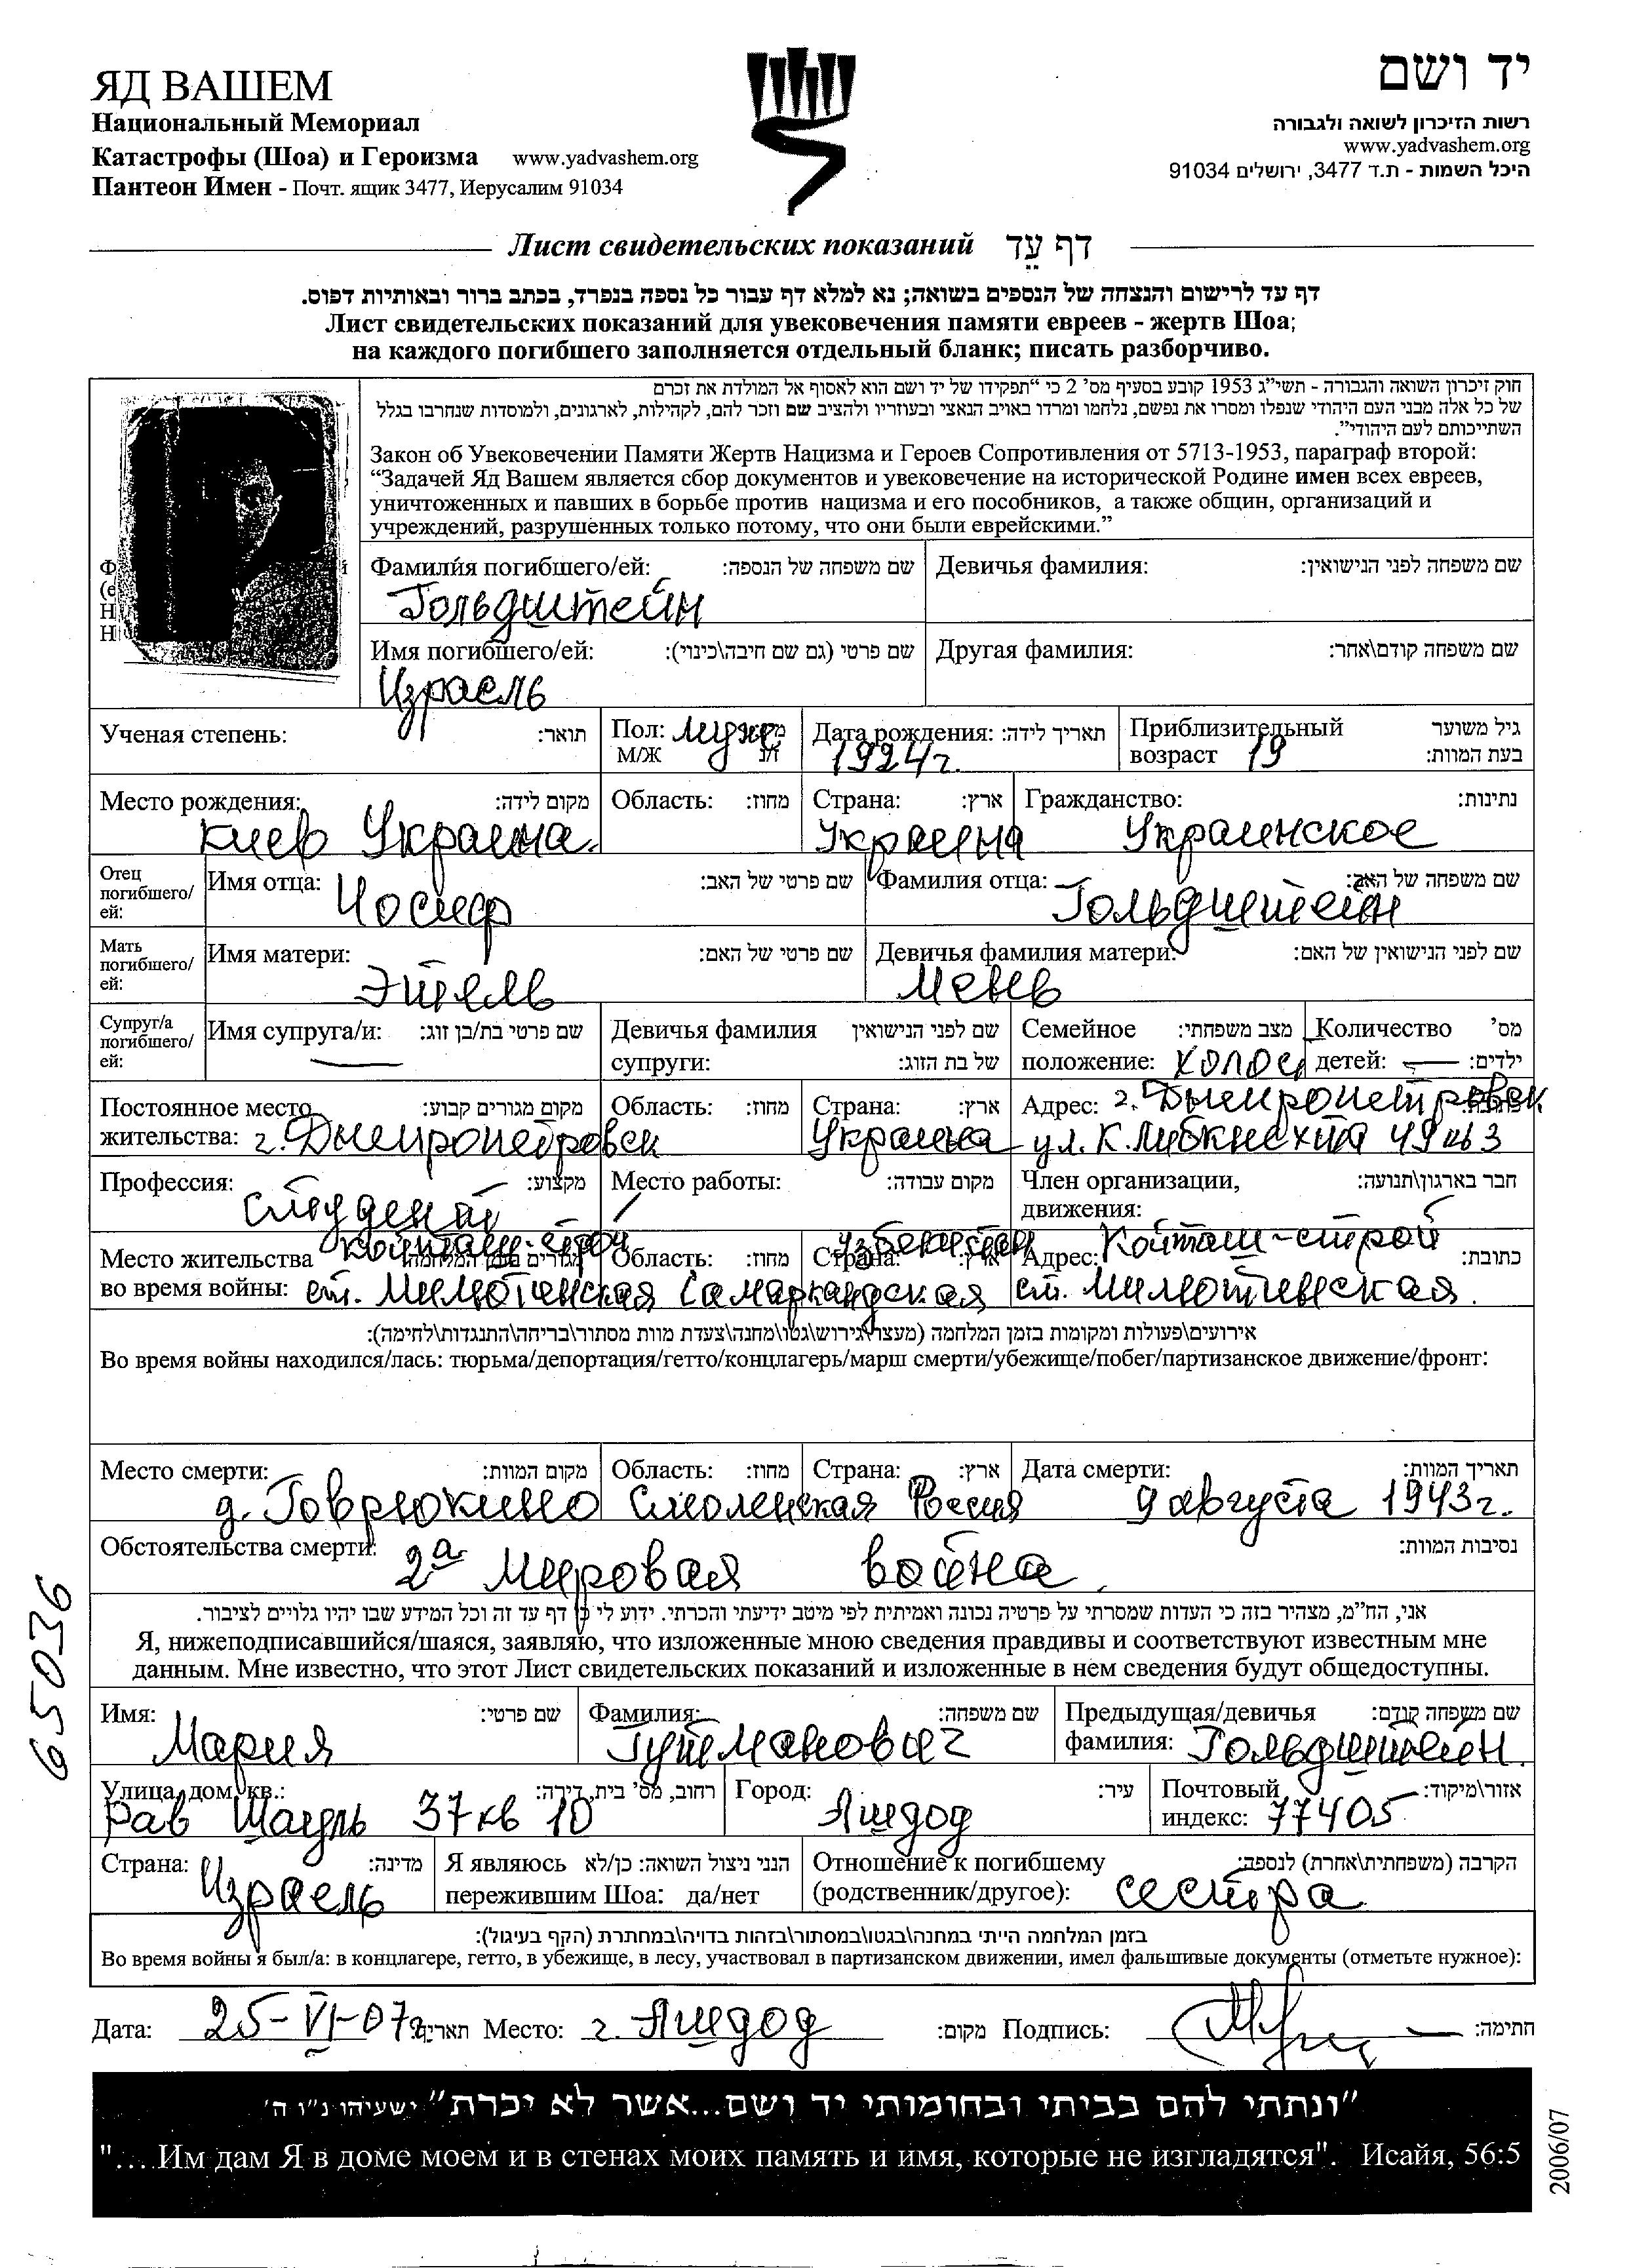 ЯД ВАШЕМ
Национальный Мемориал
Катастрофы (Шоа) и Героизма www.yadvashem.org
Пантеон Имен - Почт. ящик 3477, Иерусалим 91034
יד ושם
רשות הזיכרון לשואה ולגבורה
www.yadvashem.org
היכל השמות - ת.ד 3477, ירושלים 91034
Лист свидетельских показаний דף עֵד
דף עד לרישום והנצחה של הנספים בשואה; נא למלא דף עבור כל נספה בנפרד, בכתב ברור ובאותיות דפוס.
Лист свидетельских показаний для увековечения памяти евреев - жертв Шоа;
на каждого погибшего заполняется отдельный бланк; писать разборчиво.
חוק זיכרון השואה והגבורה - תשי"ג 1953 קובע בסעיף מס' 2 כי "תפקידו של יד ושם הוא לאסוף אל המולדת את זכרם
של כל אלה מבני העם היהודי שנפלו ומסרו את נפשם, נלחמו ומרדו באויב הנאצי ובעוזריו ולהציב שם וזכר להם, לקהילות, לארגונים, ולמוסדות שנחרבו בגלל
השתייכותם לעם היהודי".
Закон об Увековечении Памяти Жертв Нацизма и Героев Сопротивления от 5713-1953, параграф второй:
“Задачей Яд Вашем является сбор документов и увековечение на исторической Родине имен всех евреев,
уничтоженных и павших в борьбе против нацизма и его пособников, а также общин, организаций и
учреждений, разрушенных только потому, что они были еврейскими.”
Фамилия погибшего/ей: שם משפחה של הנספה: Девичья фамилия: שם משפחה לפני הנישואין:
Гольдштейн
Имя погибшего/ей: שם פרטי (גם שם חיבה\כינוי): Другая фамилия: שם משפחה קודם\אחר:
Израель
Ученая степень: תואר: Пол: муж. Дата рождения: תאריך לידה: Приблизительный גיל משוער
М/Ж 1924г. возраст 19 בעת המוות:
Место рождения: מקום לידה: Область: מחוז: Страна: ארץ: Гражданство: נתינות:
Киев Украина. Украина Украинское
Отец погибшего/ей: Имя отца: Иосиф שם פרטי של האב: Фамилия отца: Гольдштейн שם משפחה של האב:
Мать погибшего/ей: Имя матери: שם פרטי של האם: Девичья фамилия матери: שם לפני הנישואין של האם:
Этель
Супруг/а погибшего/ей: Имя супруга/и: שם פרטי בת/בן זוג: Девичья фамилия שם לפני הנישואין Семейное מצב משפחתי: Количество מס'
супруги: של בת הזוג: положение: холост детей: — ילדים:
Постоянное место מקום מגורים קבוע: Область: מחוז: Страна: ארץ: Адрес: г. Днепропетровск
жительства: г. Днепропетровск Украина ул. К. Либкнехта 49 кв 3
Профессия: מקצוע: Место работы: מקום עבודה: Член организации, חבר בארגון\תנועה:
Студент движения:
Койташ-строй Узбекистан Койташ-строй
Место жительства Область: מחוז: Страна: ארץ: Адрес: כתובת:
во время войны: ст. Милютинская Самаркандская ст. Милютинская.
אירועים\פעולות ומקומות בזמן המלחמה (מעצר\גירוש\גטו\מחנה\צעדת מוות מסתור\בריחה\התנגדות\לחימה):
Во время войны находился/лась: тюрьма/депортация/гетто/концлагерь/марш смерти/убежище/побег/партизанское движение/фронт:
Место смерти: מקום המוות: Область: מחוז: Страна: ארץ: Дата смерти: תאריך המוות:
д. Говрюкино Смоленская Россия 9 августа 1943г.
Обстоятельства смерти: 2ª Мировая война. נסיבות המוות:
אני, הח"מ, מצהיר בזה כי העדות שמסרתי על פרטיה נכונה ואמיתית לפי מיטב ידיעתי והכרתי. ידוע לי כי דף עד זה וכל המידע שבו יהיו גלויים לציבור.
Я, нижеподписавшийся/шаяся, заявляю, что изложенные мною сведения правдивы и соответствуют известным мне
данным. Мне известно, что этот Лист свидетельских показаний и изложенные в нем сведения будут общедоступны.
Имя: שם פרטי: Фамилия: שם משפחה: Предыдущая/девичья שם משפחה קודם:
Мария Гутманович фамилия: Гольдштейн.
Улица, дом, кв.: רחוב, מס' בית, דירה: Город: עיר: Почтовый אזור\מיקוד:
Рав Шауль 37 кв 10 Ашдод индекс: 77405
Страна: מדינה: Я являюсь הנני ניצול השואה: כן/לא Отношение к погибшему הקרבה (משפחתית\אחרת) לנספה:
Израель пережившим Шоа: да/нет (родственник/другое): сестра
בזמן המלחמה הייתי במחנה\בגטו\במסתור\בזהות בדויה\במחתרת (הקף בעיגול):
Во время войны я был/а: в концлагере, гетто, в убежище, в лесу, участвовал в партизанском движении, имел фальшивые документы (отметьте нужное):
Дата: 25-VI-07г. תאריך: Место: г. Ашдод מקום: Подпись: חתימה:
"ונתתי להם בביתי ובחומותי יד ושם...אשר לא יכרת" ישעיהו נ"ו ה'
"....Им дам Я в доме моем и в стенах моих память и имя, которые не изгладятся". Исайя, 56:5
65036
2006/07